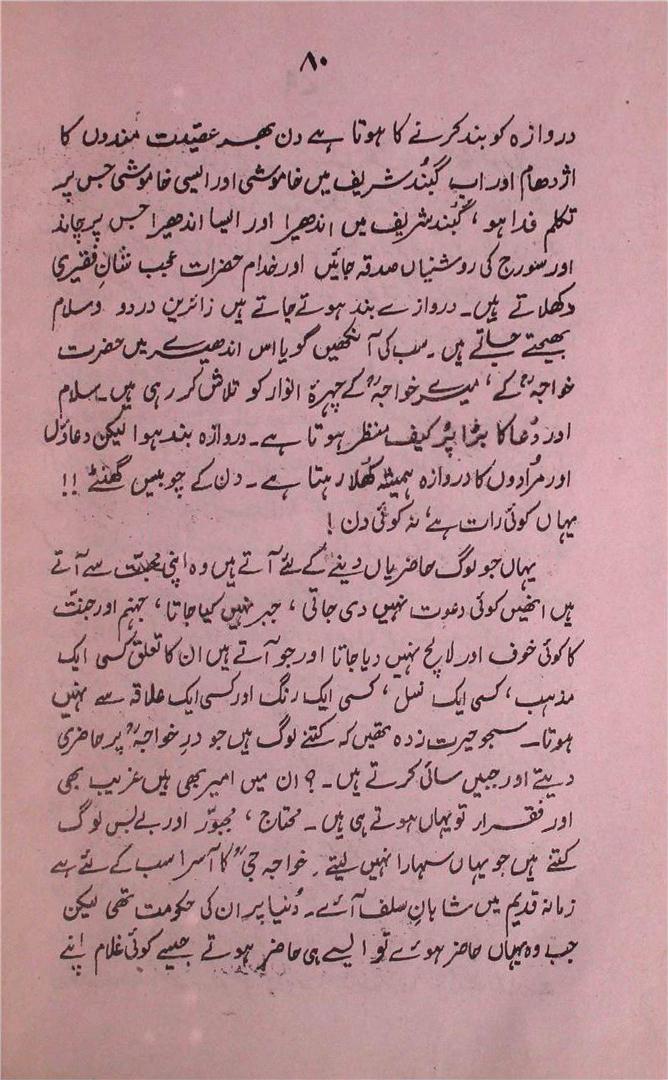 ۸۰
دروازہ کو بند کرنے کا ہوتا ہے دن بھر عقیدت مندوں کا
اژدھام اور اب گنبد شریف میں خاموشی اور ایسی خاموشی جس پر
تکلم فدا ہو، گنبد شریف میں اندھیرا اور ایسا اندھیرا جس پر چاند
اور سورج کی روشنیاں صدقہ جائیں اور خدام حضرات عجب شانِ فقیری
دکھلاتے ہیں۔ دروازے بند ہوتے جاتے ہیں زائرین دردو وسلام
بھیجتے جاتے ہیں۔ سب کی آنکھیں گویا اس اندھیرے میں حضرت
خواجہؒ کے، میرے خواجہؒ کے چہرۂ انوار کو تلاش کر رہی ہیں۔ سلام
اور دُعا کا بڑا پُر کیف منظر ہوتا ہے۔ دروازہ بند ہوا لیکن دعاؤں
اور مُرادوں کا دروازہ ہمیشہ کھُلا رہتا ہے۔ دن کے چوبیس گھنٹے !!
یہاں کوئی رات ہے، نہ کوئی دن !
یہاں جو لوگ حاضریاں دینے کے لئے آتے ہیں وہ اپنی محبت سے آتے
ہیں انھیں کوئی دعوت نہیں دی جاتی، جبر نہیں کیا جاتا، جہنم اور جنت
کا کوئی خوف اور لالچ نہیں دیا جاتا اور جو آتے ہیں ان کا تعلق کسی ایک
مذہب، کسی ایک نسل، کسی ایک رنگ اور کسی ایک علاقہ سے نہیں
ہوتا۔ سجو حیرت زدہ تھیں کہ کتنے لوگ ہیں جو درِ خواجہؒ پر حاضری
دیتے اور جبیں سائی کرتے ہیں۔ ؟ ان میں امیر بھی ہیں غریب بھی
اور فقراء تو یہاں ہوتے ہی ہیں۔ محتاج، مجبور اور بے بس لوگ
کتنے ہیں جو یہاں سہارا نہیں لیتے۔ خواجہ جیؒ کا آسرا سب کے لئے ہے
زمانہ قدیم میں شاہانِ سلف آئے۔ دُنیا پر ان کی حکومت تھی لیکن
جب وہ یہاں حاضر ہوئے تو ایسے ہی حاضر ہوتے جیسے کوئی غلام اپنے